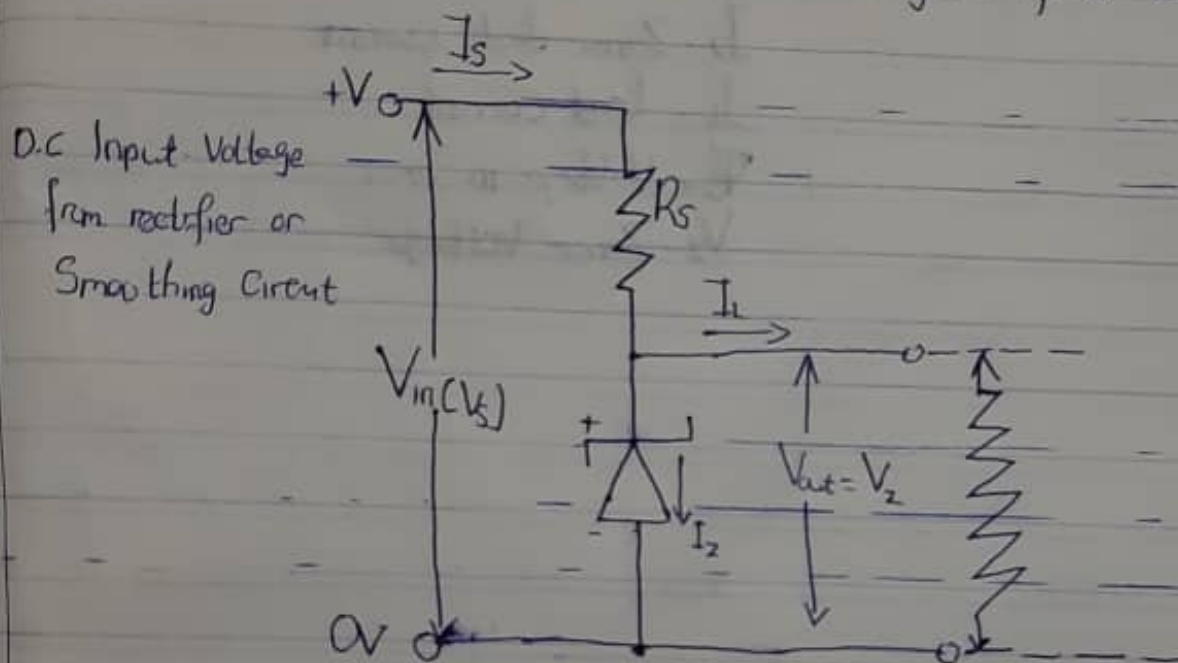 Is
+V
D.C Input Voltage
frm rectifier or
Smoothing Circut
Rs
IL
Vin(Vs)
+
Vout = Vz
-
Iz
OV